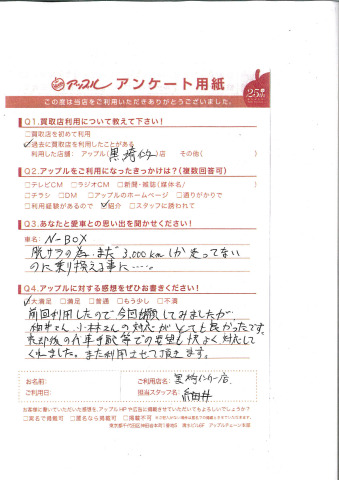 アップル アンケート用紙
25周年
この度は当店をご利用いただきありがとうございました。
Q1.買取店利用について教えて下さい!
□買取店を初めて利用
☑過去に買取店を利用したことがある
利用した店舗: アップル(黒埼インター)店 その他( )
Q2.アップルをご利用になったきっかけは?(複数回答可)
□テレビCM □ラジオCM □新聞・雑誌(媒体名/ )
□チラシ □DM □アップルのホームページ □通りがかりで
□利用経験があるので ☑紹介 □スタッフに誘われて
Q3.あなたと愛車との思い出を聞かせください!
車名: N-BOX
脱サラの為、まだ3,000kmしか走ってない
のに乗り換える事に……。
Q4.アップルに対する感想をぜひお書きください!
☑大満足 □満足 □普通 □もう少し □不満
前回利用したので今回も依頼してみましたが、
さん、小林さんの対応がとても良かったです。
売却後の代車手配等での要望も快よく対応して
くれました。また利用させて頂きます。
お名前:
ご利用店名: 黒埼インター店
ご利用日:
担当スタッフ名:
お客様に書いていただいた感想を、アップルHPや広告に掲載させていただいてもよろしいでしょうか?
□実名で掲載可 □匿名なら掲載可 □掲載不可